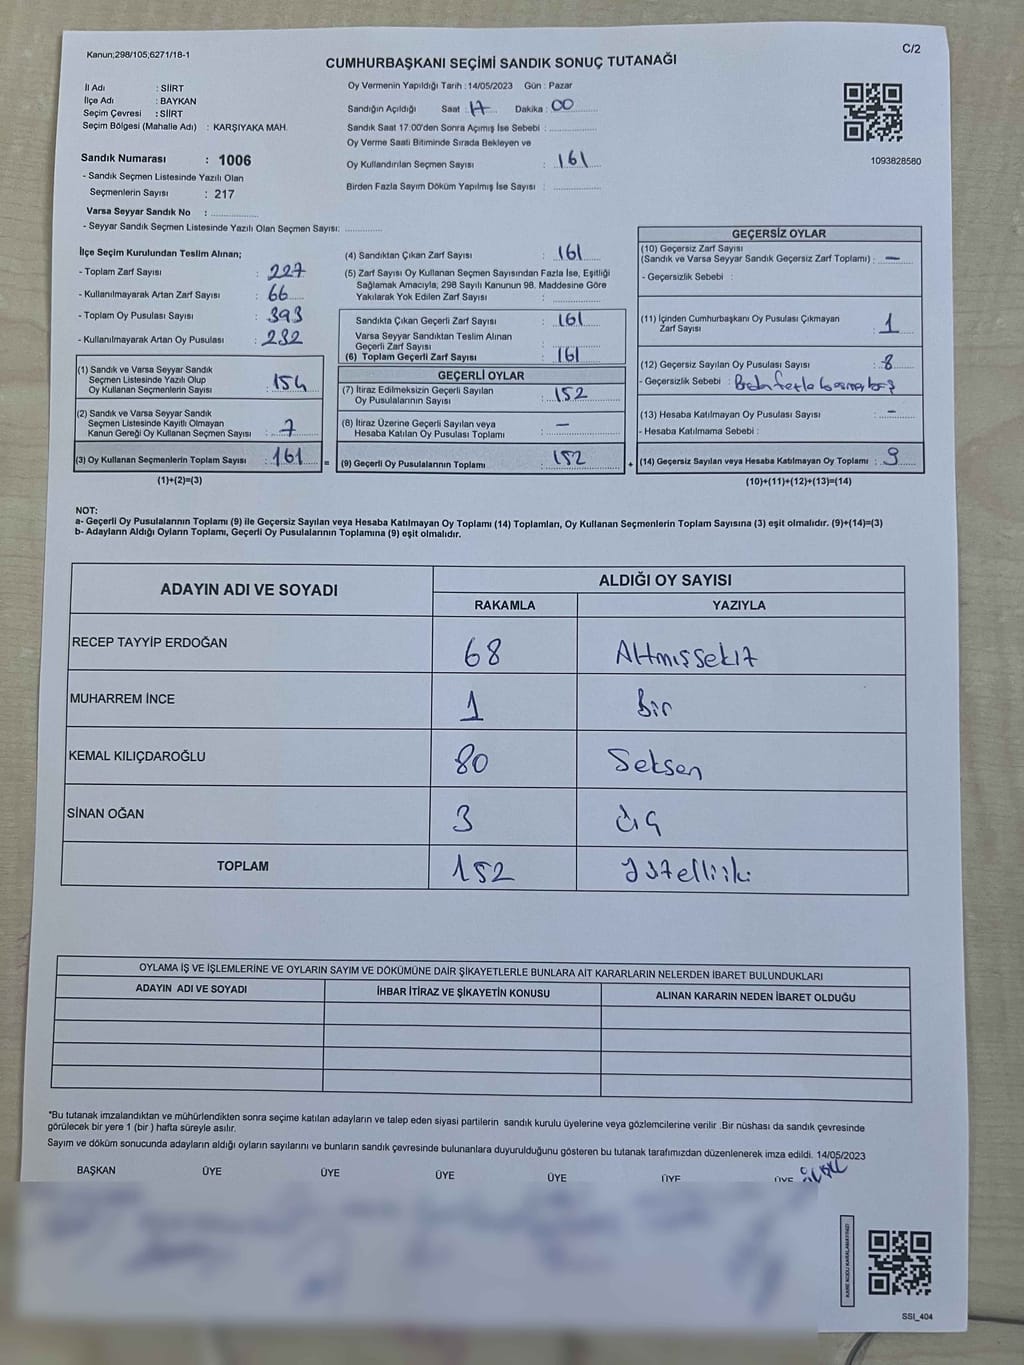 Kanun;298/105;6271/18-1
C/2
CUMHURBAŞKANI SEÇİMİ SANDIK SONUÇ TUTANAĞI
İl Adı : SİİRT
İlçe Adı : BAYKAN
Seçim Çevresi : SİİRT
Seçim Bölgesi (Mahalle Adı) : KARŞIYAKA MAH.
Sandık Numarası : 1006
- Sandık Seçmen Listesinde Yazılı Olan
Seçmenlerin Sayısı : 217
Varsa Seyyar Sandık No :
- Seyyar Sandık Seçmen Listesinde Yazılı Olan Seçmen Sayısı:
Oy Vermenin Yapıldığı Tarih : 14/05/2023 Gün : Pazar
Sandığın Açıldığı Saat : 17 Dakika : 00
Sandık Saat 17:00'den Sonra Açımış İse Sebebi :
Oy Verme Saati Bitiminde Sırada Bekleyen ve
Oy Kullandırılan Seçmen Sayısı : 161
Birden Fazla Sayım Döküm Yapılmış İse Sayısı :
1093828580
İlçe Seçim Kurulundan Teslim Alınan;
- Toplam Zarf Sayısı : 227
- Kullanılmayarak Artan Zarf Sayısı : 66
- Toplam Oy Pusulası Sayısı : 393
- Kullanılmayarak Artan Oy Pusulası : 232
(1) Sandık ve Varsa Seyyar Sandık
Seçmen Listesinde Yazılı Olup
Oy Kullanan Seçmenlerin Sayısı : 154
(2) Sandık ve Varsa Seyyar Sandık
Seçmen Listesinde Kayıtlı Olmayan
Kanun Gereği Oy Kullanan Seçmen Sayısı : 7
(3) Oy Kullanan Seçmenlerin Toplam Sayısı : 161
(1)+(2)=(3)
(4) Sandıktan Çıkan Zarf Sayısı : 161
(5) Zarf Sayısı Oy Kullanan Seçmen Sayısından Fazla İse, Eşitliği
Sağlamak Amacıyla; 298 Sayılı Kanunun 98. Maddesine Göre
Yakılarak Yok Edilen Zarf Sayısı :
Sandıkta Çıkan Geçerli Zarf Sayısı : 161
Varsa Seyyar Sandıktan Teslim Alınan
Geçerli Zarf Sayısı
(6) Toplam Geçerli Zarf Sayısı : 161
GEÇERLİ OYLAR
(7) İtiraz Edilmeksizin Geçerli Sayılan
Oy Pusulalarının Sayısı : 152
(8) İtiraz Üzerine Geçerli Sayılan veya
Hesaba Katılan Oy Pusulası Toplamı : —
= (9) Geçerli Oy Pusulalarının Toplamı : 152
GEÇERSİZ OYLAR
(10) Geçersiz Zarf Sayısı
(Sandık ve Varsa Seyyar Sandık Geçersiz Zarf Toplamı) : —
- Geçersizlik Sebebi :
(11) İçinden Cumhurbaşkanı Oy Pusulası Çıkmayan
Zarf Sayısı : 1
(12) Geçersiz Sayılan Oy Pusulası Sayısı : 8
- Geçersizlik Sebebi :
(13) Hesaba Katılmayan Oy Pusulası Sayısı : -
- Hesaba Katılmama Sebebi :
+ (14) Geçersiz Sayılan veya Hesaba Katılmayan Oy Toplamı : 9
(10)+(11)+(12)+(13)=(14)
NOT:
a- Geçerli Oy Pusulalarının Toplamı (9) ile Geçersiz Sayılan veya Hesaba Katılmayan Oy Toplamı (14) Toplamları, Oy Kullanan Seçmenlerin Toplam Sayısına (3) eşit olmalıdır. (9)+(14)=(3)
b- Adayların Aldığı Oyların Toplamı, Geçerli Oy Pusulalarının Toplamına (9) eşit olmalıdır.
ADAYIN ADI VE SOYADI
ALDIĞI OY SAYISI
RAKAMLA YAZIYLA
RECEP TAYYİP ERDOĞAN 68 Altmışsekiz
MUHARREM İNCE 1 Bir
KEMAL KILIÇDAROĞLU 80 Seksen
SİNAN OĞAN 3 Üç
TOPLAM 152 Yüzelliiki
OYLAMA İŞ VE İŞLEMLERİNE VE OYLARIN SAYIM VE DÖKÜMÜNE DAİR ŞİKAYETLERLE BUNLARA AİT KARARLARIN NELERDEN İBARET BULUNDUKLARI
ADAYIN ADI VE SOYADI İHBAR İTİRAZ VE ŞİKAYETİN KONUSU ALINAN KARARIN NEDEN İBARET OLDUĞU
*Bu tutanak imzalandıktan ve mühürlendikten sonra seçime katılan adayların ve talep eden siyasi partilerin sandık kurulu üyelerine veya gözlemcilerine verilir .Bir nüshası da sandık çevresinde
görülecek bir yere 1 (bir ) hafta süreyle asılır.
Sayım ve döküm sonucunda adayların aldığı oyların sayılarını ve bunların sandık çevresinde bulunanlara duyurulduğunu gösteren bu tutanak tarafımızdan düzenlenerek imza edildi. 14/05/2023
BAŞKAN ÜYE ÜYE ÜYE ÜYE ÜYE ÜYE
KARE KODU KARALAMAYINIZ!
SSI_404